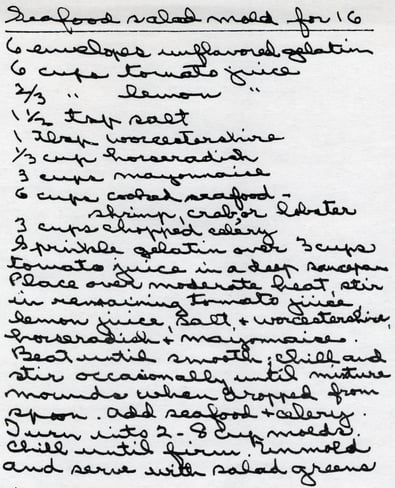 Seafood salad mold for 16
6 envelopes unflavored gelatin
6 cups tomato juice
2/3 " lemon "
1 1/2 tsp salt
1 Tbsp worcestershire
1/3 cup horseradish
3 cups mayonnaise
6 cups cooked seafood -
shrimp, crab, or lobster
3 cups chopped celery
Sprinkle gelatin over 3 cups
tomato juice in a deep saucepan
Place over moderate heat, stir
in remaining tomato juice,
lemon juice, salt, + worcestershire,
horseradish + mayonnaise.
Beat until smooth; chill and
stir occasionally until mixture
mounds when dropped from
spoon. Add seafood + celery.
Turn into 2 - 8 cup molds.
Chill until firm. Unmold
and serve with salad greens